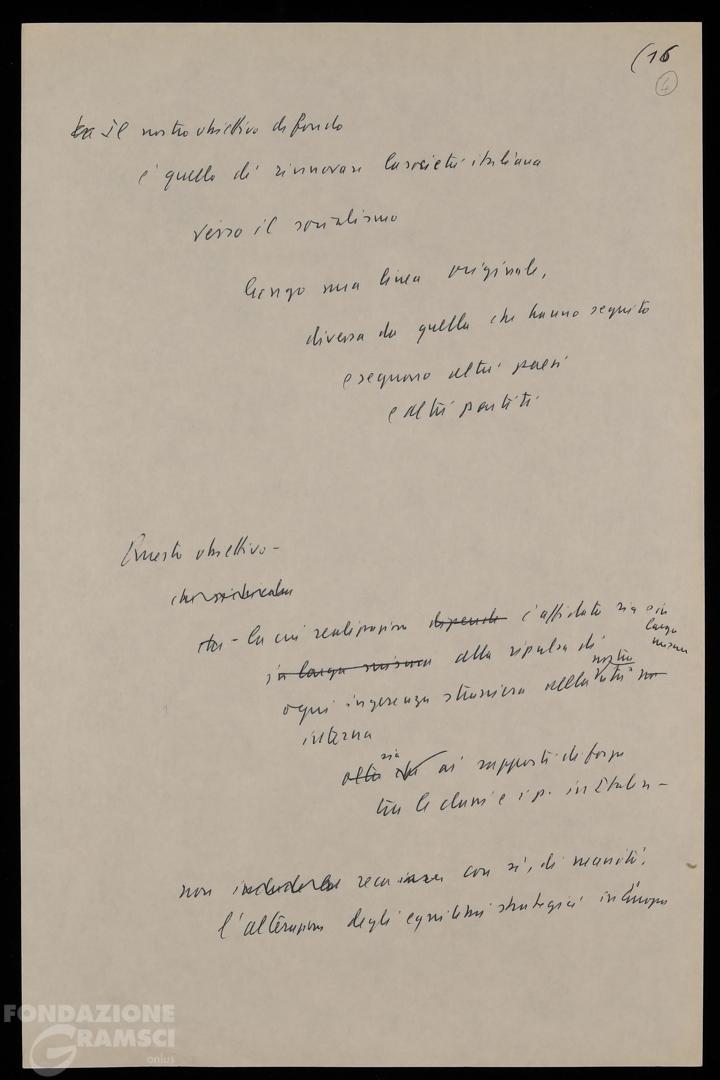 (16
4
Il nostro obiettivo di fondo
è quello di rinnovare la società italiana
verso il socialismo
lungo una linea originale,
diversa da quella che hanno seguito
e seguono altri paesi
e altri partiti
Questo obiettivo -
- la cui realizzazione dipende è affidata sia e in
larga
misura
in larga misura alla ripulsa di
ogni ingerenza straniera nella nostra vita
interna
oltre che sia ai rapporti di forza
tra le classi e i p. in Italia -
non reca con sé, di necessità,
l'alterazione degli equilibri strategici in Europa
FONDAZIONE
GRAMSCI
onlus